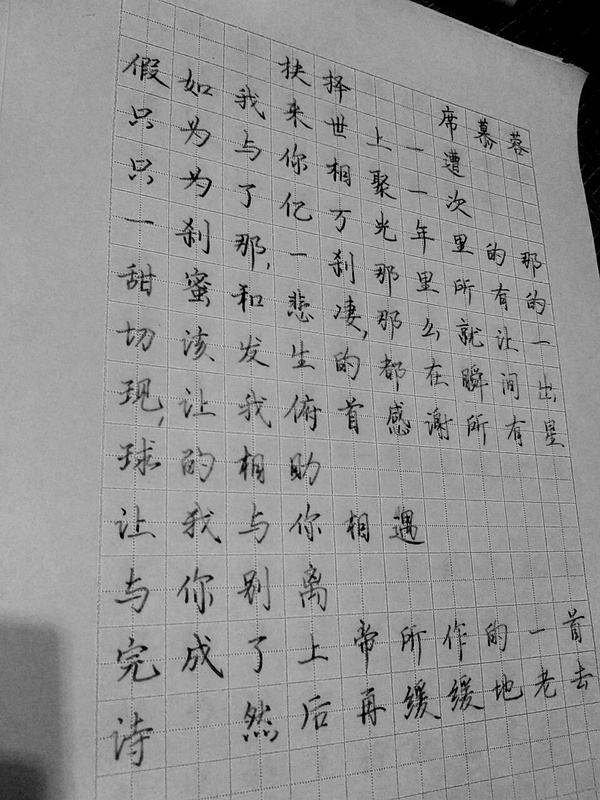 抉择
席慕蓉
假如我来世上一遭
只为与你相聚一次
只为了亿万光年里的那
一刹那,一刹那里所有的
甜蜜和悲凄,那么就让一
切该发生的都在瞬间出
现,让我俯首感谢所有星
球的相助
让我与你相遇
与你别离
完成了上帝所作的一首
诗 然后再缓缓地老去